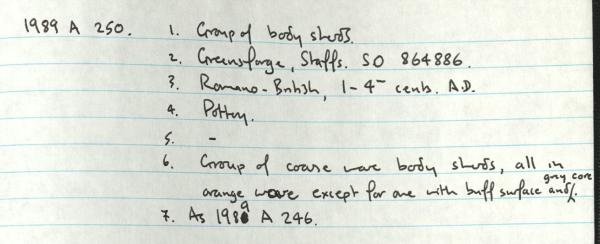 1989 A 250. 1. Group of body sherds.
2. Greensforge, Staffs. SO 864886.
3. Romano-British, 1-4 cents. A.D.
4. Pottery.
5. -
6. Group of coarse ware body sherds, all in
orange ware except for one with buff surface and grey core.
7. As 1989 A 246.